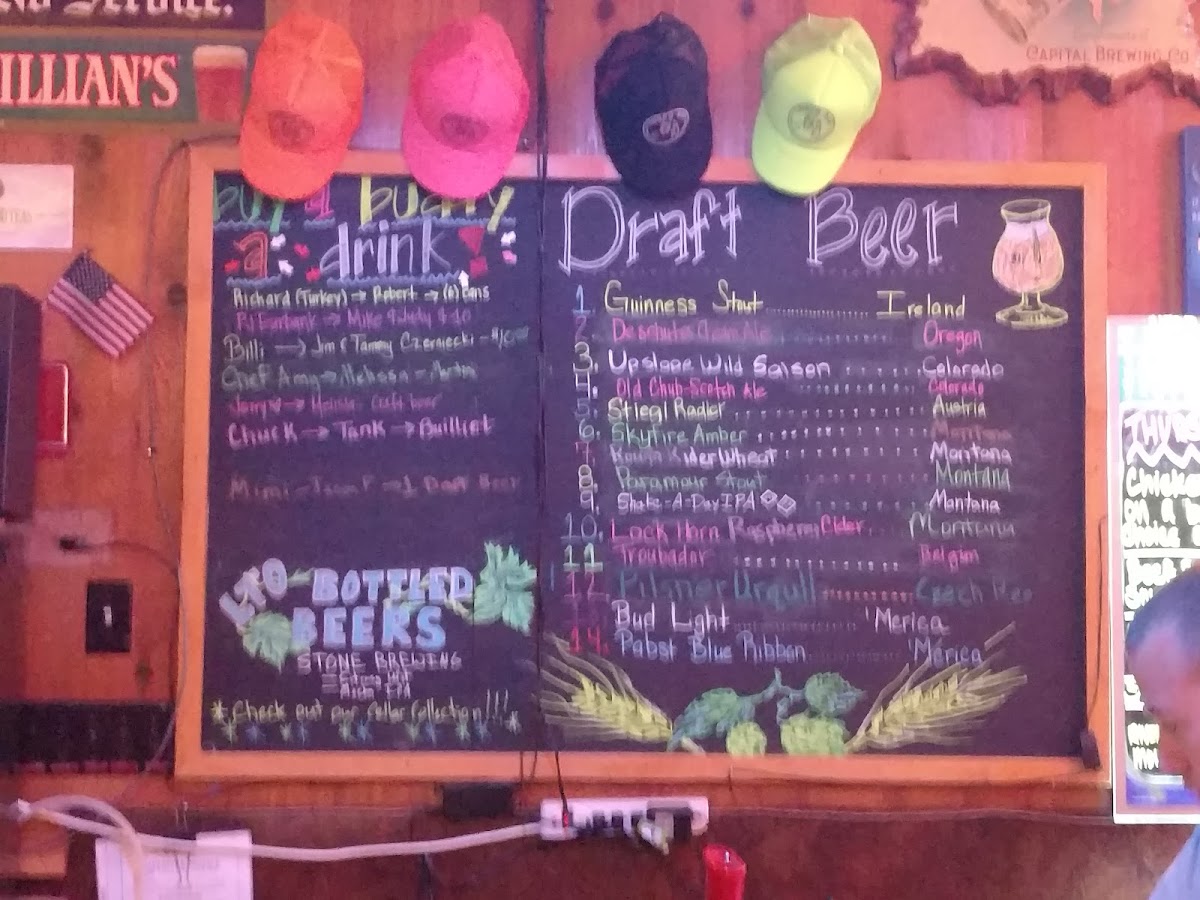 No Service.
ILLIAN'S
CAPITAL BREWING CO
buy a buddy
a drink!
Richard (Turkey) → Robert → (6) Cans
→ Mike & Judy $20
Billi → Jim & Tammy Czerniecki -
Chef Amy → Melissa -
→ Craft beer
Chuck → Tank → Bulliet
Mimi - → 1 Draft Beer
LTO - BOTTLED
BEERS
STONE BREWING
IPA
*Check out our Cellar Collection!!!*
Draft Beer
1. Guinness Stout Ireland
2. Deschutes Ale Oregon
3. Upslope Wild Saison Colorado
4. Old Chub-Scotch Ale Colorado
5. Stiegl Radler Austria
6. Skyfire Amber Montana
7. Wheat Montana
8. Paramour Stout Montana
9. Shake-A-Day IPA Montana
10. Lock Horn Raspberry Cider Montana
11. Troubador Belgium
12. Pilsner Urqull Czech Rep
Bud Light 'Merica
14. Pabst Blue Ribbon 'Merica
THURS
Chicke
on a